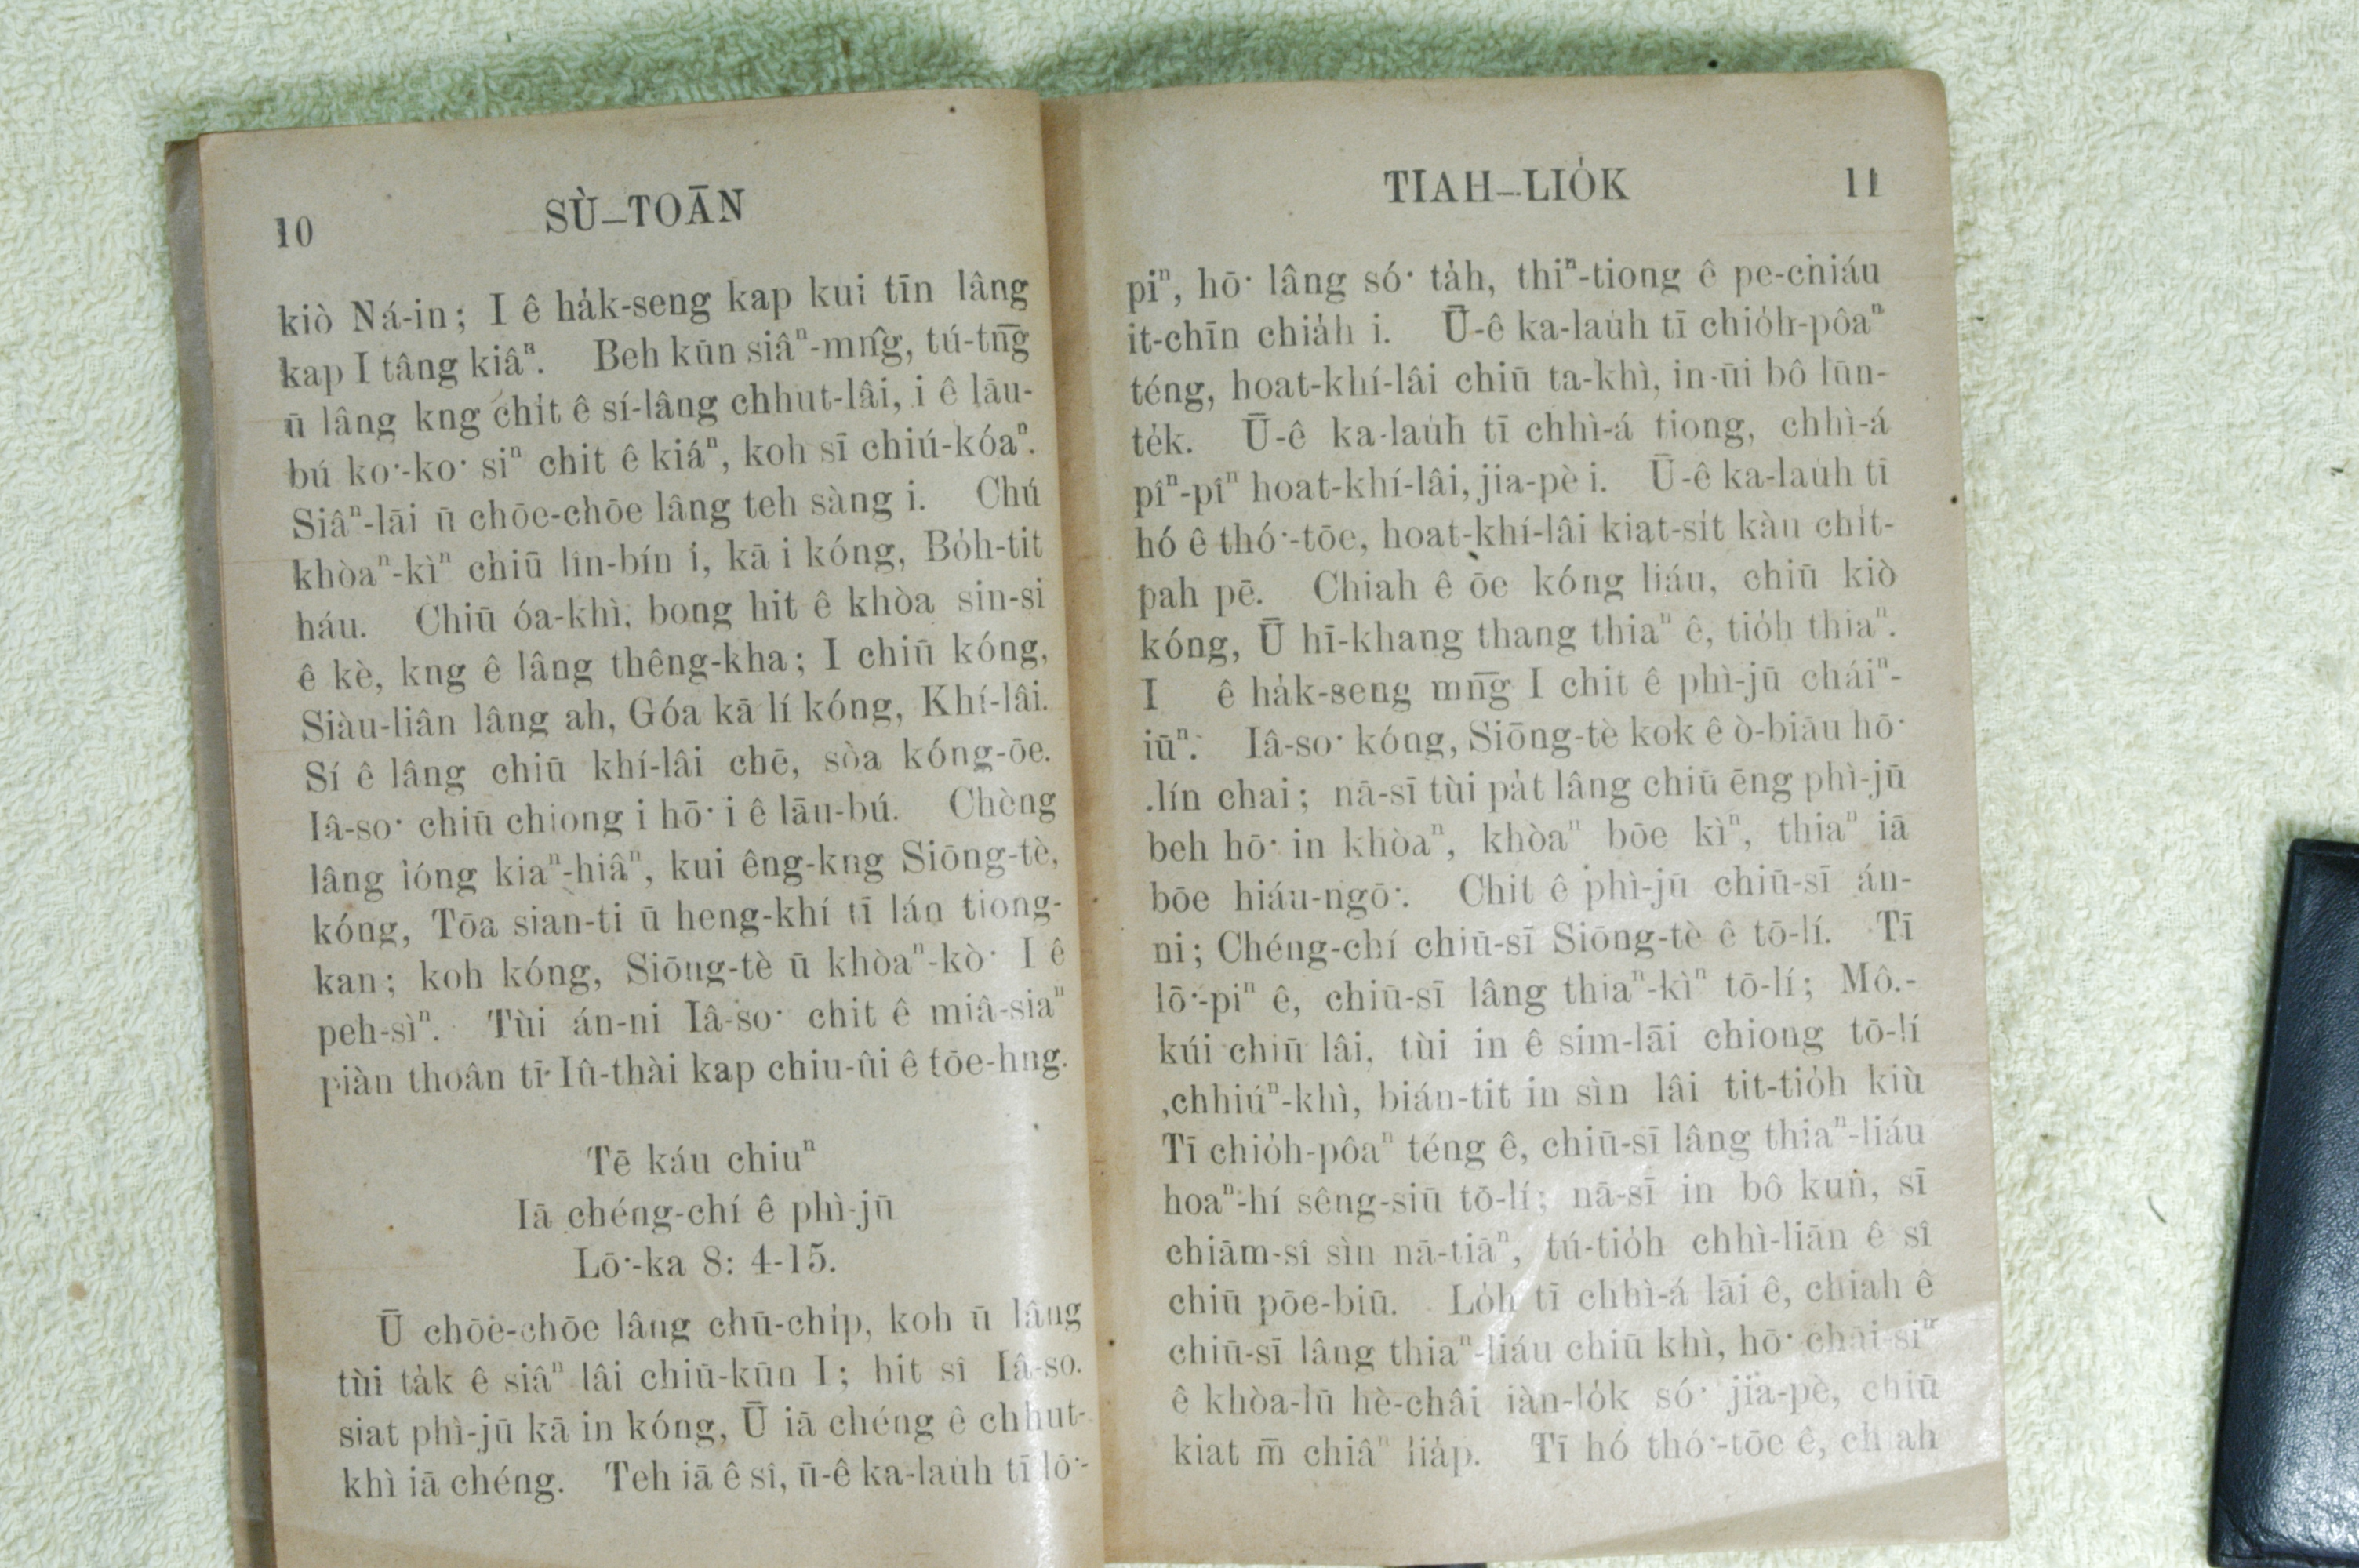 10 SÙ–TOĀN
kiò Ná-in; I ê ha̍k-seng kap kui tīn lâng
kap I tâng kiâⁿ. Beh kūn siâⁿ-mn̂g, tú-tn̄g
ū lâng kng chi̍t ê sí-lâng chhut-lâi, i ê lāu-
bú ko͘-ko͘ siⁿ chit ê kiáⁿ, koh sī chiú-kóaⁿ.
Siâⁿ-lāi ū chōe-chōe lâng teh sàng i. Chú
khòaⁿ-kìⁿ chiū lîn-bín i, kā i kóng, Bo̍h-tit
háu. Chiū óa-khì, bong hit ê khòa sin-si
ê kè, kng ê lâng thêng-kha; I chiū kóng,
Siàu-liân lâng ah, Góa kā lí kóng, Khí-lâi.
Sí ê lâng chiū khí-lâi chē, sòa kóng-ōe.
Iâ-so͘ chiū chiong i hō͘ i ê lāu-bú. Chèng
lâng ióng kiaⁿ-hiâⁿ, kui êng-kng Siōng-tè,
kóng, Tōa sian-ti ū heng-khí tī lán tiong-
kan; koh kóng, Siōng-tè ū khòaⁿ-kò͘ I ê
peh-sìⁿ. Tùi án-ni Iâ-so͘ chit ê miâ-siaⁿ
piàn thoân tī Iû-thài kap chiu-ûi ê tōe-hng.
Tē káu chiuⁿ
Iā chéng-chí ê phì-jū
Lō͘-ka 8: 4-15.
Ū chōe-chōe lâng chū-chi̍p, koh ū lâng
tùi ta̍k ê siâⁿ lâi chiū-kūn I; hit sî Iâ-so.
siat phì-jū kā in kóng, Ū iā chéng ê chhut-
khì iā chéng. Teh iā ê sî, ū-ê ka-lau̍h tī lō͘-
TIAH–LIO̍K 11
piⁿ, hō͘ lâng só͘ ta̍h, thiⁿ-tiong ê pe-chiáu
it-chīn chia̍h i. Ū-ê ka-lau̍h tī chio̍h-pôaⁿ
téng, hoat-khí-lâi chiū ta-khì, in-ūi bô lūn-
te̍k. Ū-ê ka-lau̍h tī chhì-á tiong, chhì-á
pîⁿ-pîⁿ hoat-khí-lâi, jia-pè i. Ū-ê ka-lau̍h tī
hó ê thó͘-tōe, hoat-khí-lâi kiat-si̍t kàu chi̍t-
pah pē. Chiah ê ōe kóng liáu, chiū kiò
kóng, Ū hī-khang thang thiaⁿ ê, tio̍h thiaⁿ.
I ê ha̍k-seng mn̄g I chit ê phì-jū cháiⁿ-
iūⁿ. Iâ-so͘ kóng, Siōng-tè kok ê ò-biāu hō͘
lín chai; nā-sī tùi pa̍t lâng chiū ēng phì-jū
beh hō͘ in khòaⁿ, khòaⁿ bōe kìⁿ, thiaⁿ iā
bōe hiáu-ngō͘. Chit ê phì-jū chiū-sī án-
ni; Chéng-chí chiū-sī Siōng-tè ê tō-lí. Tī
lō͘-piⁿ ê, chiū-sī lâng thiaⁿ-kìⁿ tō-lí; Mô.-
kúi chiū lâi, tùi in ê sim-lāi chiong tō-lí
chhiúⁿ-khì, bián-tit in sìn lâi tit-tio̍h kiù
Tī chio̍h-pôaⁿ téng ê, chiū-sī lâng thiaⁿ-liáu
hoaⁿ-hí sêng-siū tō-lí; nā-sī in bô kun, sī
chiām-sî sìn nā-tiāⁿ, tú-tio̍h chhì-liān ê sî
chiū pōe-biū. Lo̍h tī chhì-á lāi ê, chiah ê
chiū-sī lâng thiaⁿ-liáu chiū khì, hō͘ chāi-siⁿ
ê khòa-lū hè-châi iàn-lo̍k só͘ jia-pè, chiū
kiat m̄ chiâⁿ lia̍p. Tī hó thó͘-tōe ê, chiah